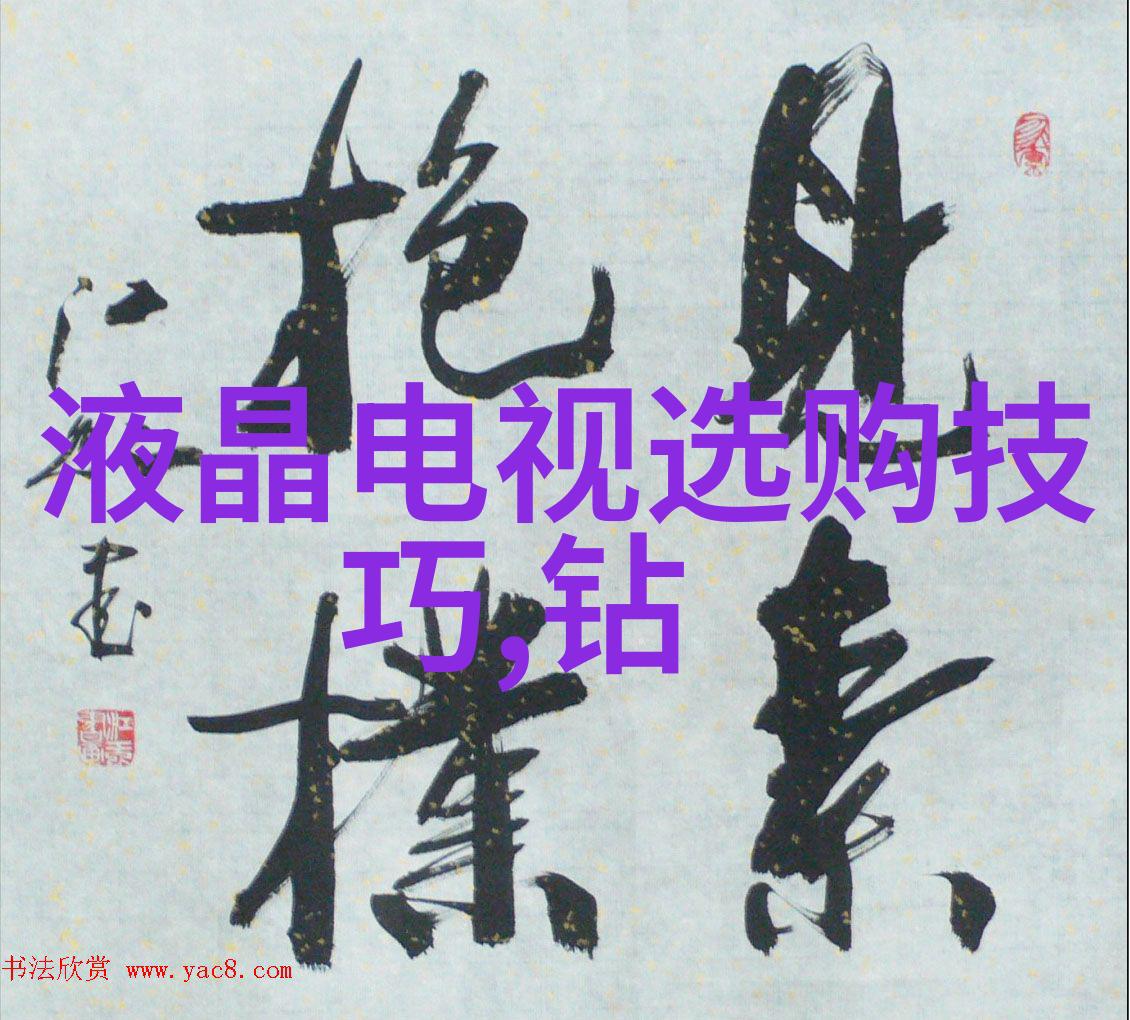 液晶电视选购技
巧,钻
見素
抱樸
书法欣赏 www.yac8.com